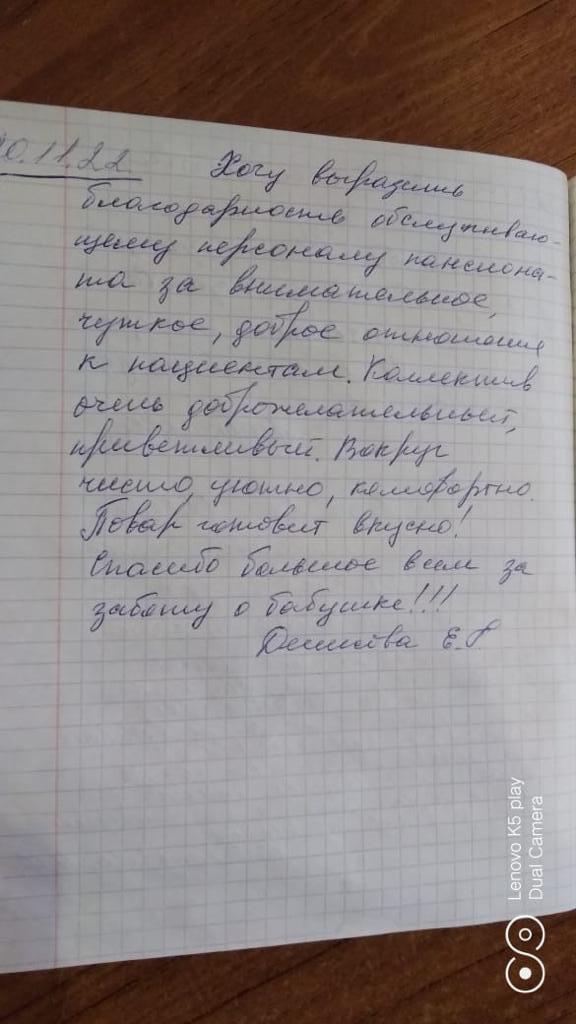 0.11.22 Хочу выразить
благодарность обслуживаю-
щему персоналу пансиона-
та за внимательное,
чуткое, доброе отношения
к пациентам. Коллектив
очень доброжелательный,
приветливый. Вокруг
чисто, уютно, комфортно.
Повар готовит вкусно!
Спасибо большое всем за
заботу о бабушке!!!
Е.
Lenovo K5 play
Dual Camera